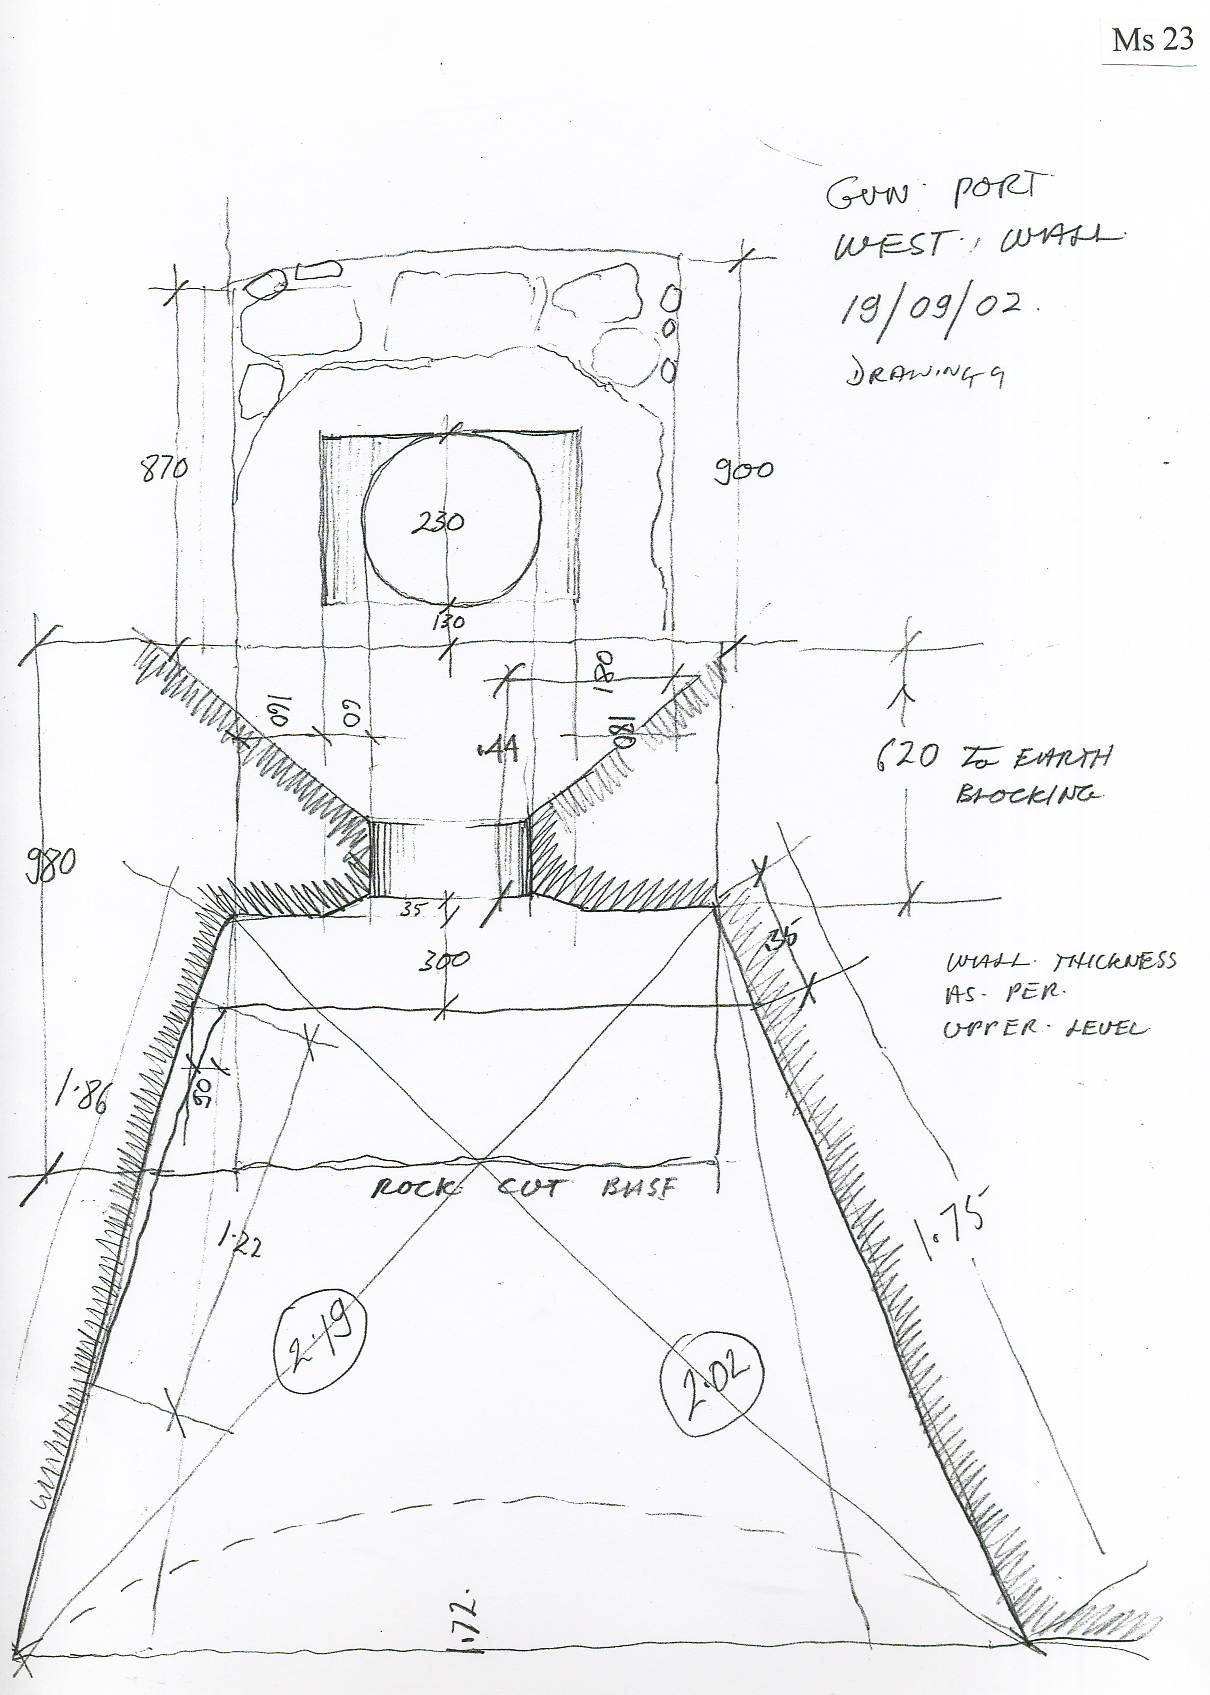 Ms 23
GUN PORT
WEST WALL
19/09/02.
DRAWING 9
870
900
230
130
160
60
180
180
.44
620 TO EARTH
BLOCKING
980
35
300
.35
WALL THICKNESS
AS. PER.
UPPER. LEVEL
1.86
90
ROCK CUT BASE
1.22
1.75
2.19
2.02
1.72.